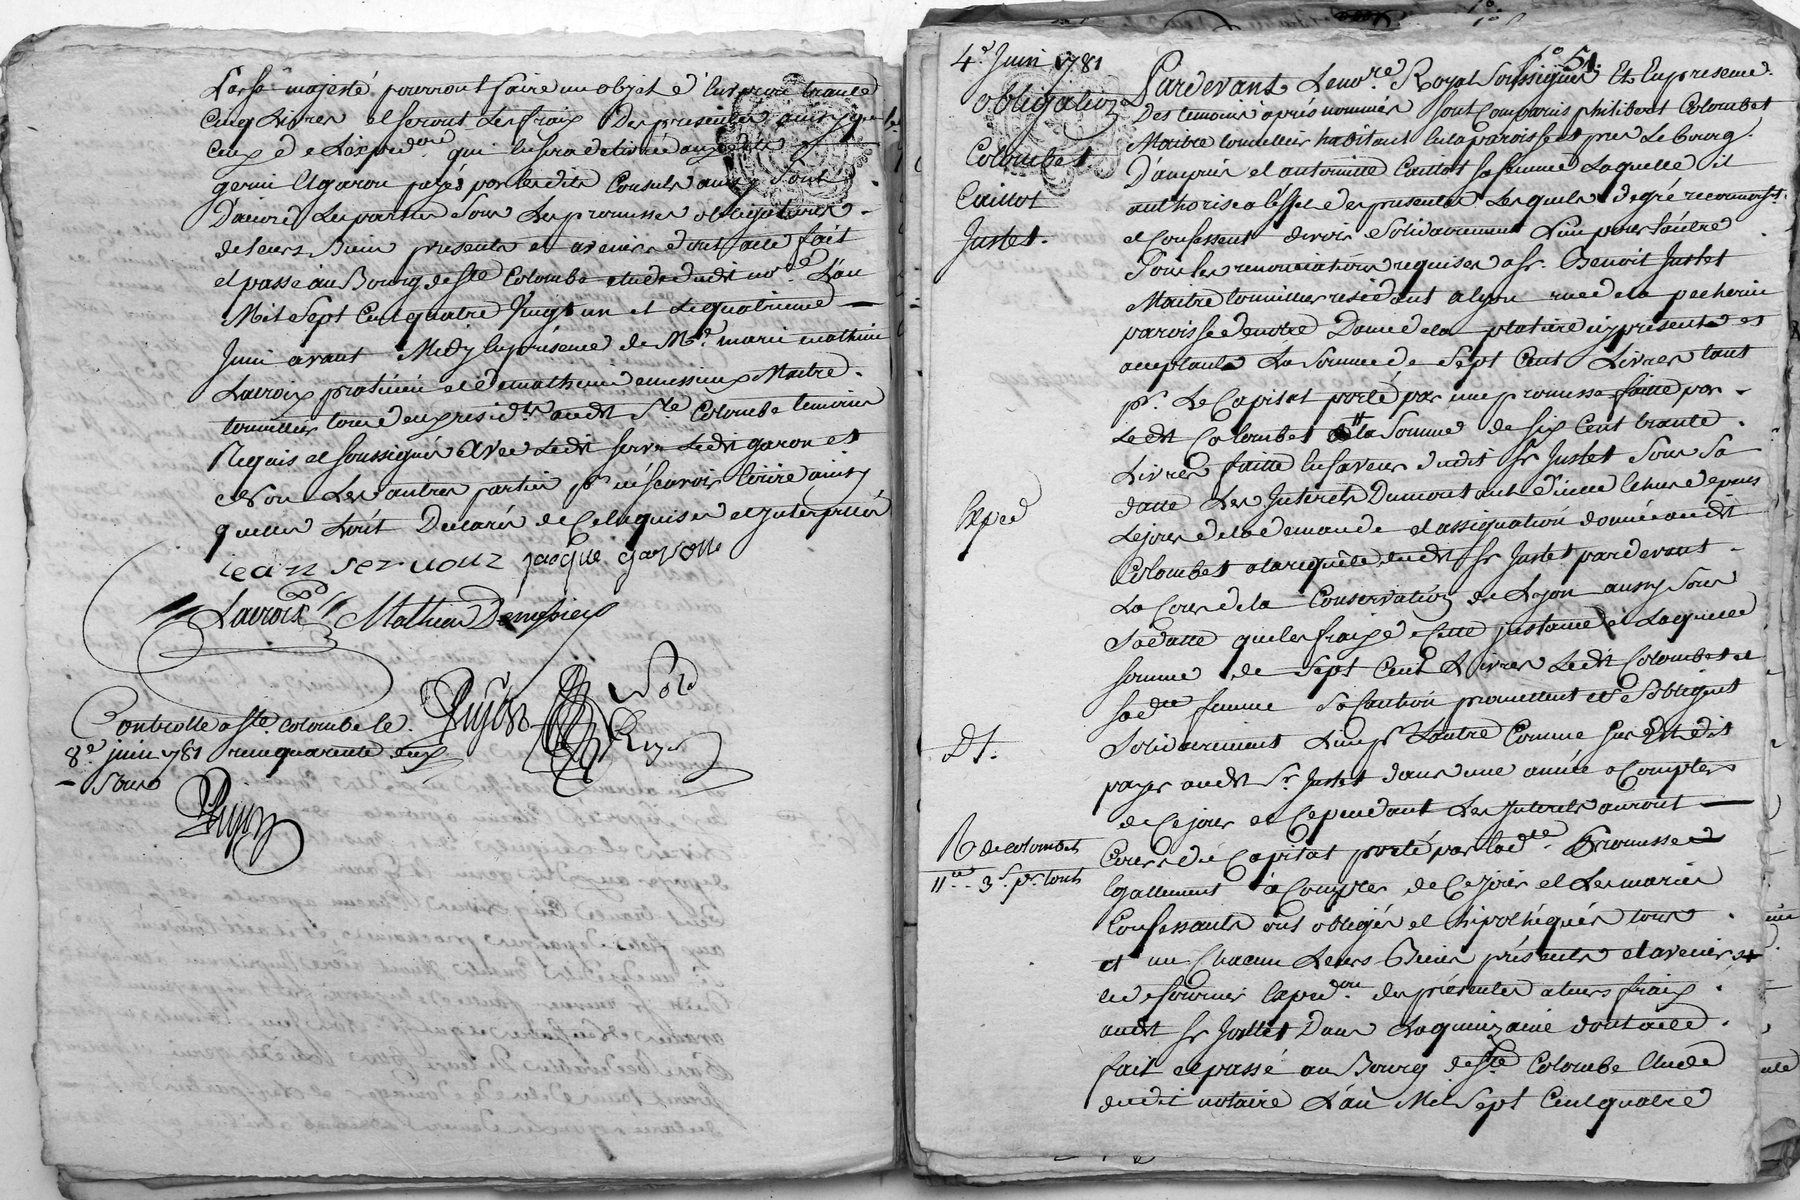 Sa majesté pourront faire un objet d'environ trante
Cinq Livres et seront Les fraix Des presentes ainsy que
Ceux de L'expedon. qui sera delivrée auxdits
germi et garon payés par lesdits Consuls ainsy sont
D'accord Les parties Sous Les promesses obligatoires
de leurs Biens presents et avenirs dont acte fait
et passé au Bourg de Ste Colombe etude dudit nore. L'an
Mil Sept Cent quatre Vingt un et Lequatrieme
Juin avant Midy En présence de Mre. marie mathieu
Lacroix praticien et de mathieu demessieux Maitre
tonnellier tous deux residts audit Ste Colombe temoins
Requis et soussignés avec Ledit serve Ledit garon et
Non Les autres parties pr. ne scavoir Ecrire ainsy
quelles L'ont Declarés de Ce Enquises et Interpellés
jean servouz jacque garon
Lacroix Mathieu Demessieux
Pujon Nore
Roy.
Controllé a Ste. colombe le
8e. juin 1781 reçu quarente deux
Sous
Pujon
51.
4e Juin 1781
Obligation
Colombet
Caillot
Justet.
Expeé
DS.
R de colombet
11tt.. 3s. pr. tout
Pardevant Le nore. Royal Soussigné Et En presence
Des temoins aprés nommés sont Comparus philibert Colombet
Maitre tonnellier habitant En la paroisse et pres Le bourg
D'ampuis et antoinette Caillot sa femme Laquelle il
authorise a l'effet des presentes Lesquels de gré reconnoisst.
et Confessent devoir Solidairement L'un pour L'autre
Sous les renonciations requises a Sr. Benoit Justet
Maitre tonnellier residant a Lyon rue de la pecherie
paroisse de notre Dame de la platiere icy present et
acceptant La Somme de Sept Cent Livres tant
pr. Le Capital porté par une promesse faitte par
Ledit Colombet a la Somme de six Cent trante
Livres faitte En faveur dudit Sr Justet Sous Sa
datte Les Interets Dumontant d'icelle Echus depuis
Le jour de la demande et assignation donnée audit
Colombet a la requête dudit Sr Justet pardevant
La Cour de la Conservation de Lyon aussy Sous
Sa datte que les fraix de Cette justance Laquelle
somme de Sept Cent Livres Ledit Colombet et
sa de femme Sa Caution promettent et S'obligent
Solidairement L'un pr L'autre Comme Sus Est dit
payer audit Sr. Justet dans une année a Compter
de Ce jour et Cependant Les Interets auront
Cours du Capital porté par lade. Promesse
Egallement à Compter de Ce jour et Les mariés
Confessants ont obligés et hipothéqués tous
et un Chacun Leurs Biens présents et avenirs
et de fournir Expedon. des présentes a leurs fraix
audit Sr Justet Dans La quinzaine dont acte
fait et passé au Bourg de Ste Colombe Etude
dudit notaire L'an Mil Sept Cent quatre